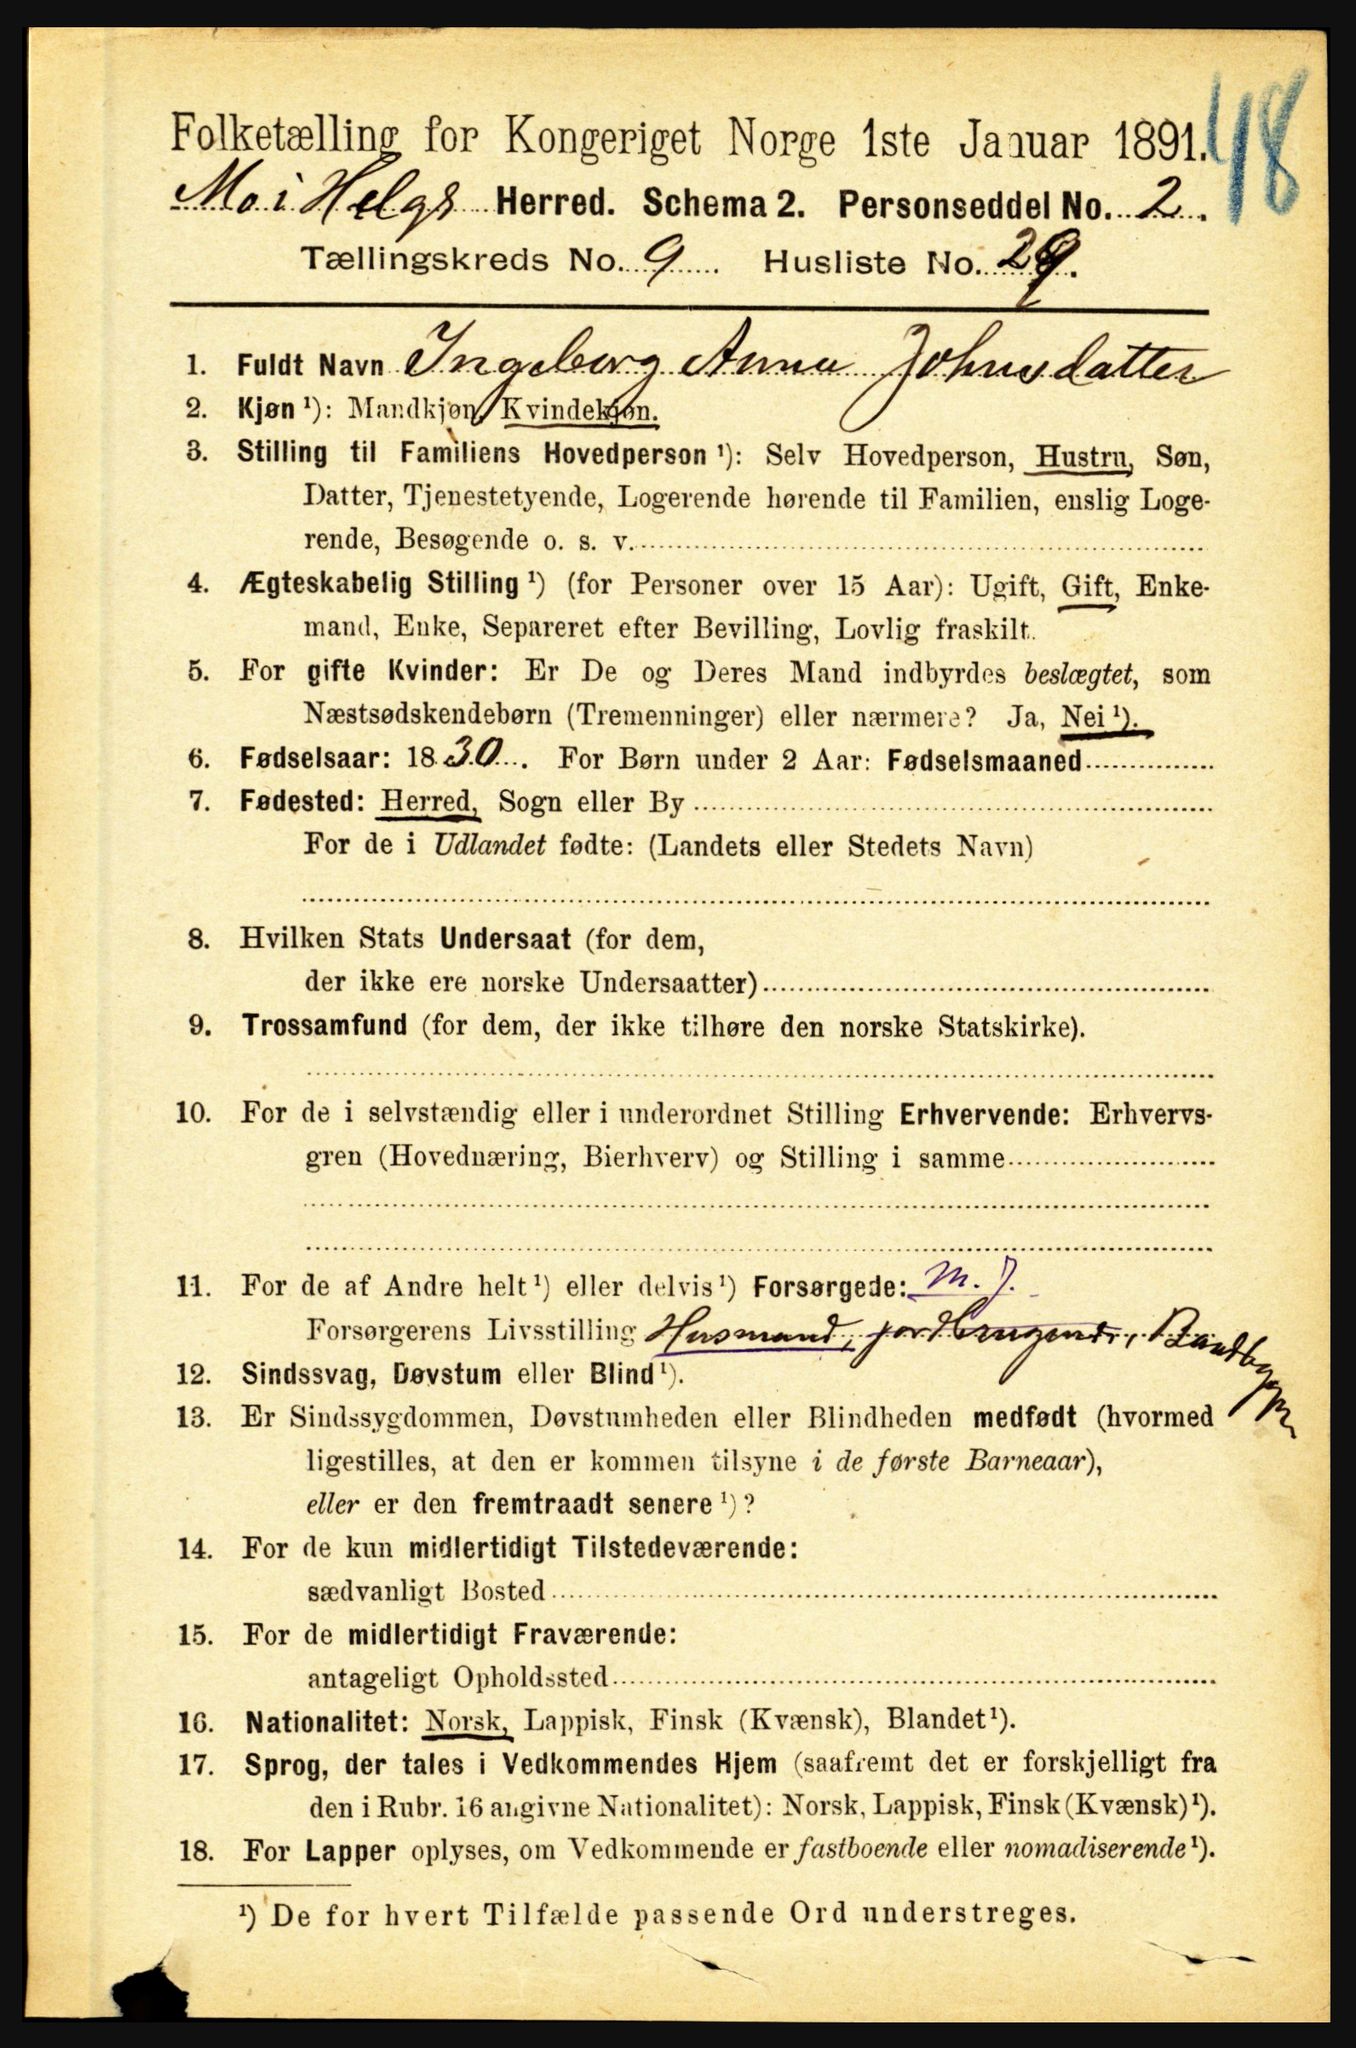 48
Folketælling for Kongeriget Norge 1ste Januar 1891.
Mo i Helgs Herred. Schema 2. Personseddel No. 2.
Tællingskreds No. 9 Husliste No. 29.
1. Fuldt Navn Ingeborg Anna Johnsdatter
2. Kjøn ¹): Mandkjøn, Kvindekjøn.
3. Stilling til Familiens Hovedperson ¹): Selv Hovedperson, Hustru, Søn,
Datter, Tjenestetyende, Logerende hørende til Familien, enslig Loge-
rende, Besøgende o. s. v.
4. Ægteskabelig Stilling ¹) (for Personer over 15 Aar): Ugift, Gift, Enke-
mand, Enke, Separeret efter Bevilling, Lovlig fraskilt.
5. For gifte Kvinder: Er De og Deres Mand indbyrdes beslægtet, som
Næstsødskendebørn (Tremenninger) eller nærmere? Ja, Nei ¹).
6. Fødselsaar: 1830. For Børn under 2 Aar: Fødselsmaaned
7. Fødested: Herred, Sogn eller By
For de i Udlandet fødte: (Landets eller Stedets Navn)
8. Hvilken Stats Undersaat (for dem,
der ikke ere norske Undersaatter)
9. Trossamfund (for dem, der ikke tilhøre den norske Statskirke).
10. For de i selvstændig eller i underordnet Stilling Erhvervende: Erhvervs-
gren (Hovednæring, Bierhverv) og Stilling i samme
11. For de af Andre helt ¹) eller delvis ¹) Forsørgede: M. J.
Forsørgerens Livsstilling Husmand, jordbrugende, Baadbygger
12. Sindssvag, Døvstum eller Blind ¹).
13. Er Sindssygdommen, Døvstumheden eller Blindheden medfødt (hvormed
ligestilles, at den er kommen tilsyne i de første Barneaar),
eller er den fremtraadt senere ¹)?
14. For de kun midlertidigt Tilstedeværende:
sædvanligt Bosted
15. For de midlertidigt Fraværende:
antageligt Opholdssted
16. Nationalitet: Norsk, Lappisk, Finsk (Kvænsk), Blandet ¹).
17. Sprog, der tales i Vedkommendes Hjem (saafremt det er forskjelligt fra
den i Rubr. 16 angivne Nationalitet): Norsk, Lappisk, Finsk (Kvænsk) ¹).
18. For Lapper oplyses, om Vedkommende er fastboende eller nomadiserende ¹).
¹) De for hvert Tilfælde passende Ord understreges.